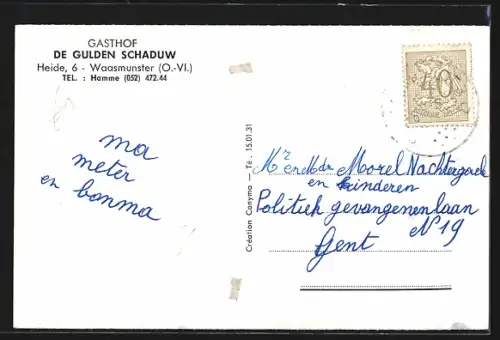 GASTHOF
DE GULDEN SCHADUW
Heide, 6 - Waasmunster (O.-Vl.)
TEL. : Hamme (052) 472.44
ma
meter
en bonma
Création Conyma — Té. 15.01.31
40
Mr en Mdm Morel Nachtergaele
en kinderen
Politiek gevangenenlaan
Gent N 19